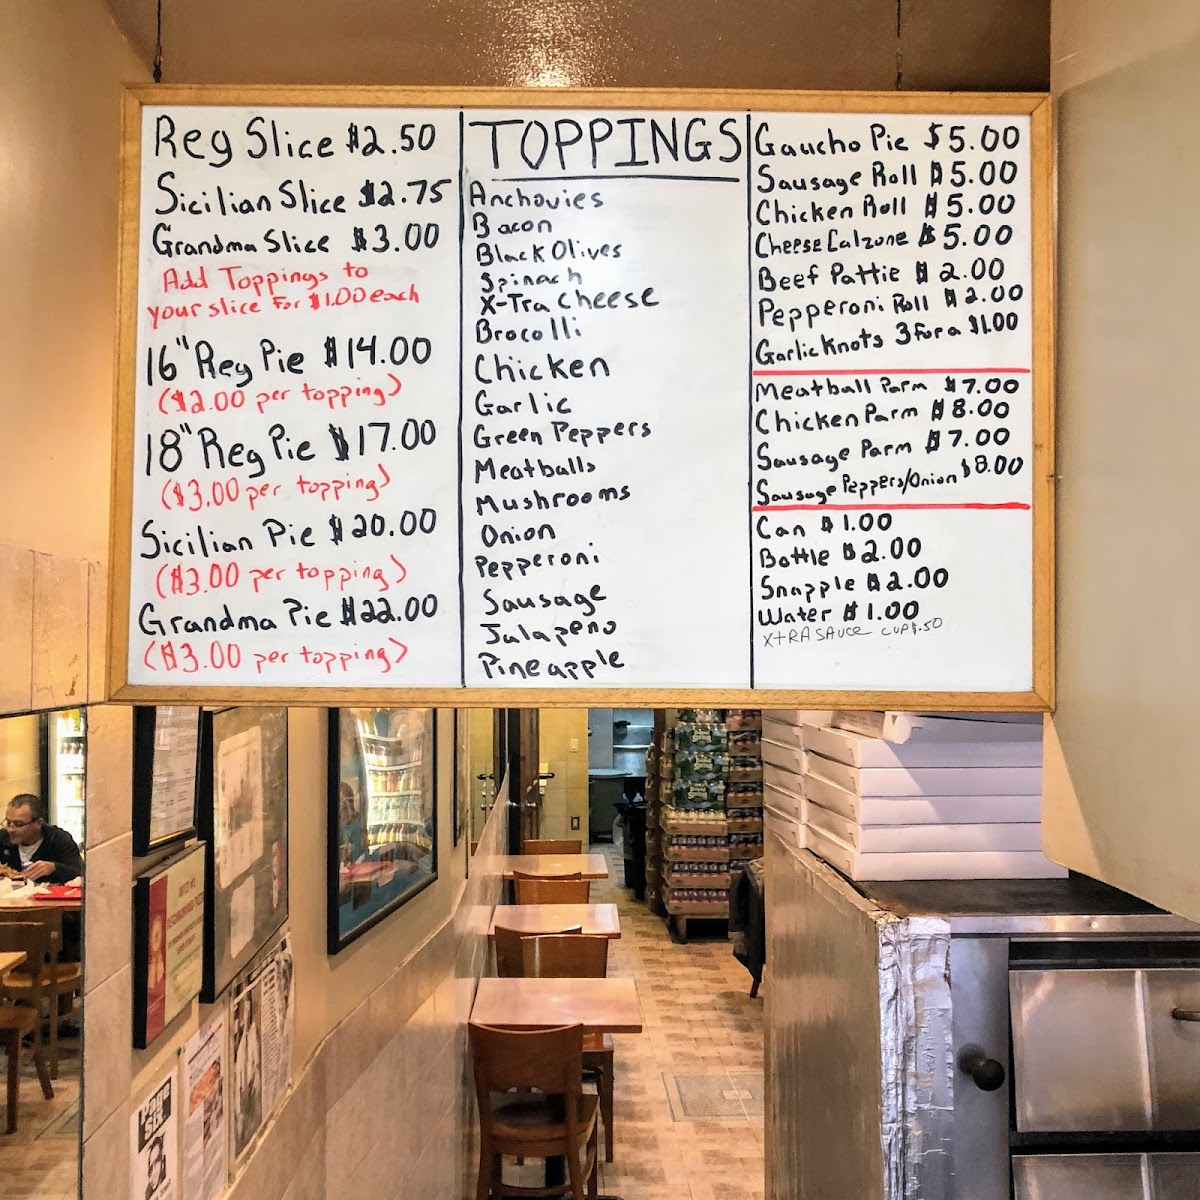 Reg Slice $2.50
Sicilian Slice $2.75
Grandma Slice $3.00
Add Toppings to
your slice For $1.00 each
16" Reg Pie $14.00
($2.00 per topping)
18" Reg Pie $17.00
($3.00 per topping)
Sicilian Pie $20.00
($3.00 per topping)
Grandma Pie $22.00
($3.00 per topping)
TOPPINGS
Anchovies
Bacon
Black Olives
Spinach
X-Tra Cheese
Brocolli
Chicken
Garlic
Green Peppers
Meatballs
Mushrooms
Onion
Pepperoni
Sausage
Jalapeno
Pineapple
Gaucho Pie $5.00
Sausage Roll $5.00
Chicken Roll $5.00
Cheese Calzone $5.00
Beef Pattie $2.00
Pepperoni Roll $2.00
Garlic Knots 3 for a $1.00
Meatball Parm $7.00
Chicken Parm $8.00
Sausage Parm $7.00
Sausage Peppers/Onion $8.00
Can $1.00
Bottle $2.00
Snapple $2.00
Water $1.00
XtRA SAUCE CUP $.50